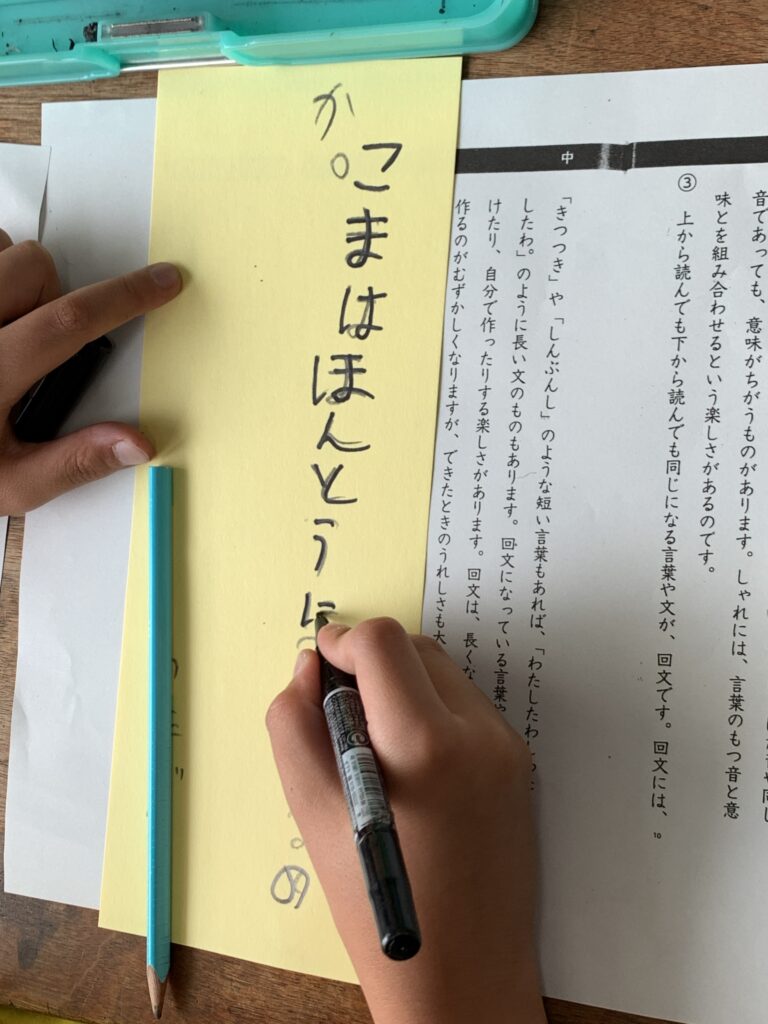 中
音や同じ
音であっても、意味がちがうものがあります。しゃれには、言葉のもつ音と意
味とを組み合わせるという楽しさがあるのです。
③
上から読んでも下から読んでも同じになる言葉や文が、回文です。回文には、
10
「きつつき」や「しんぶんし」のような短い言葉もあれば、「わたしたわし
したわ。」のように長い文のものもあります。回文になっている言葉や
けたり、自分で作ったりする楽しさがあります。回文は、長くな
作るのがむずかしくなりますが、できたときのうれしさも大
か
こまはほんとうに